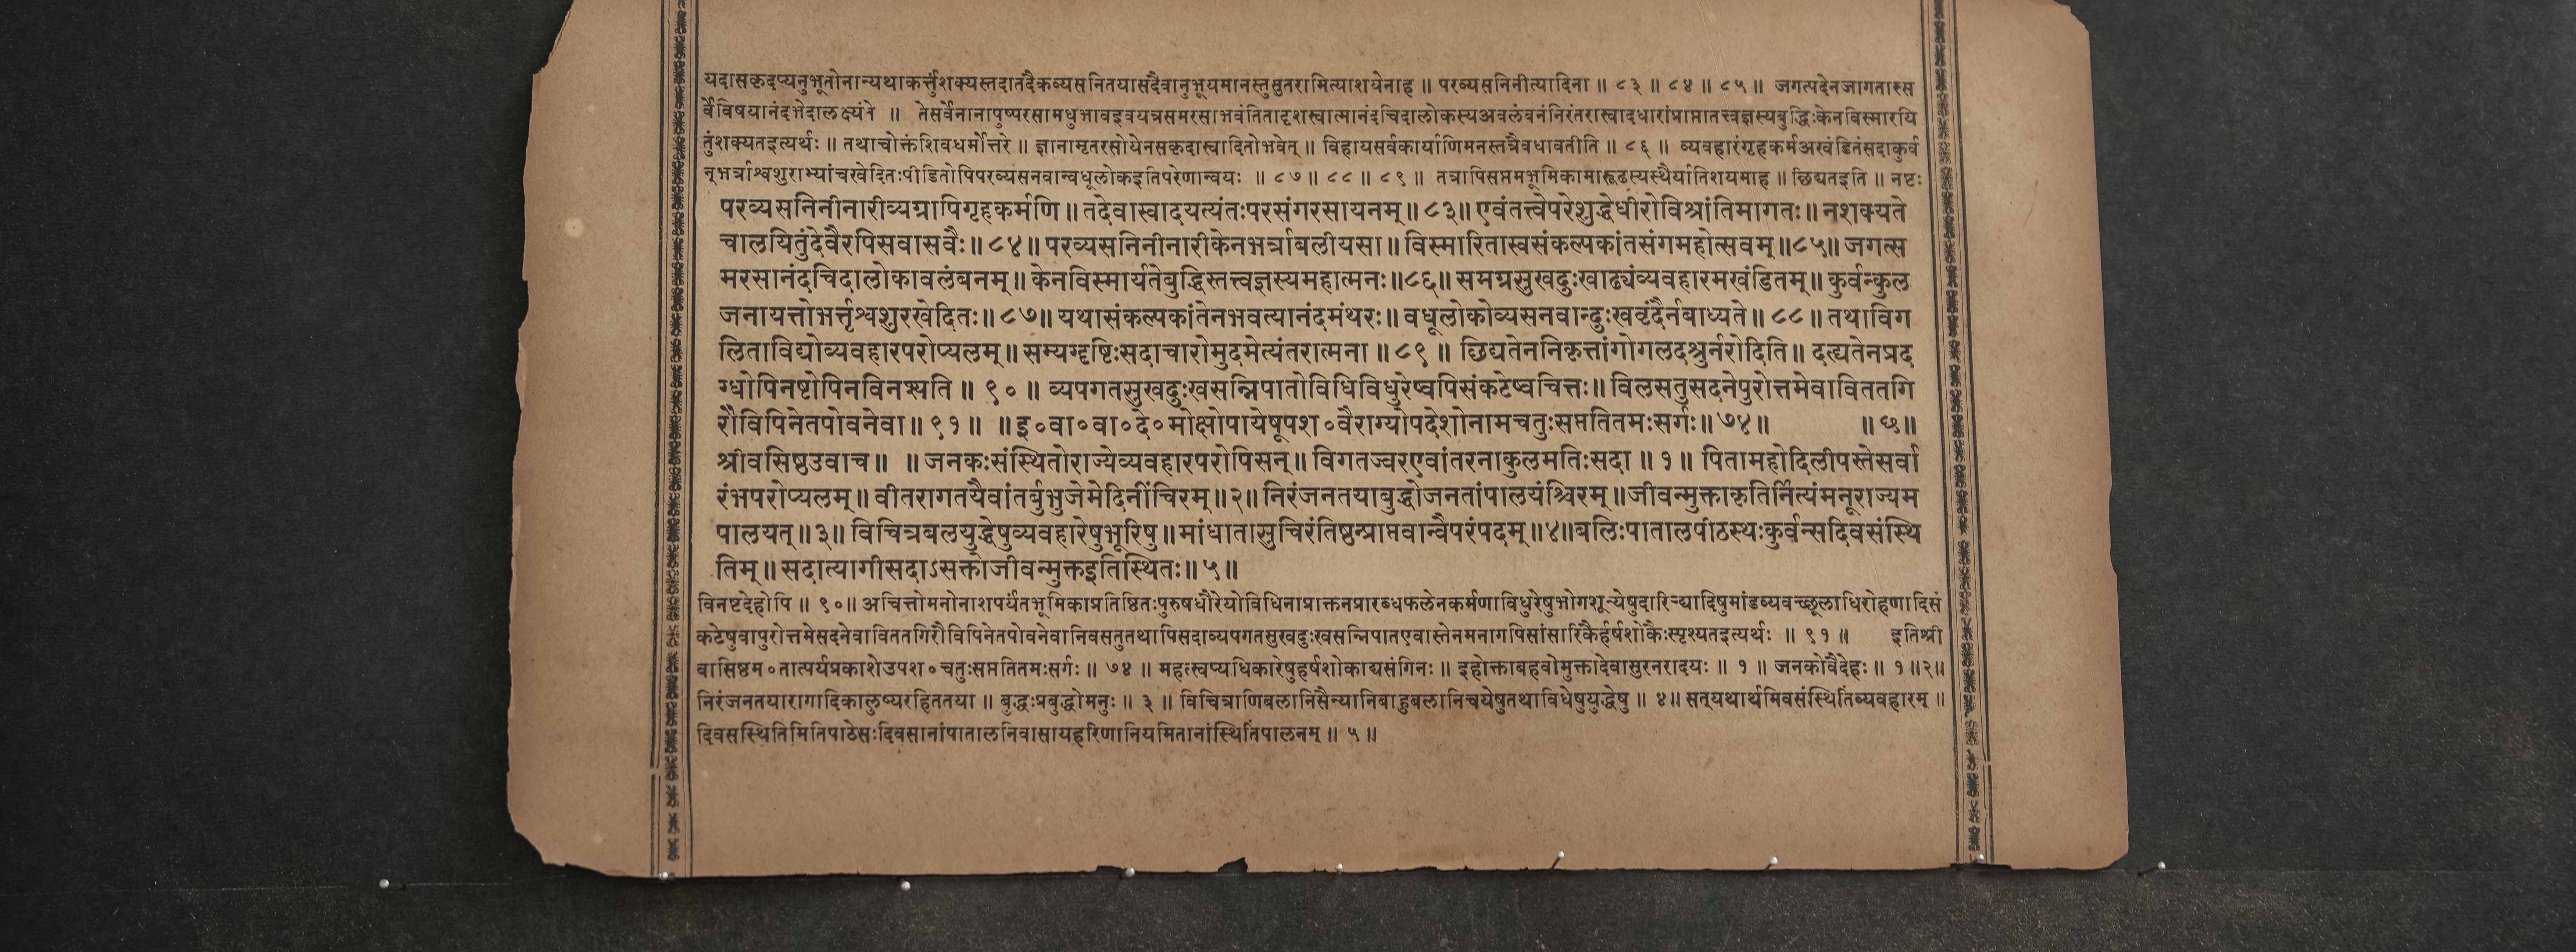 यदासकृदप्यनुभूतोनान्यथाकर्त्तुंशक्यस्तदातदैकव्यसनितयासदैवानुभूयमानस्तुसुतरामित्याशयेनाह ॥ परव्यसनिनीत्यादिना ॥ ८३ ॥ ८४ ॥ ८५ ॥ जगत्पदेनजागतास्स
र्वेविषयानंदभेदालक्ष्यंते ॥ तेसर्वेनानापुष्परसामधुभावइवयत्रसमरसाभवंतितादृशस्वात्मानंदचिदालोकस्यअवलंबनंनिरंतरास्वादधारांप्राप्तातत्त्वज्ञस्यबुद्धिःकेनविस्मारयि
तुंशक्यतइत्यर्थः ॥ तथाचोक्तंशिवधर्मोत्तरे ॥ ज्ञानामृतरसोयेनसकृदास्वादितोभवेत् ॥ विहायसर्वकार्याणिमनस्तत्रैवधावतीति ॥ ८६ ॥ व्यवहारंगृहकर्मअखंडितंसदाकुर्व
न्भर्त्राश्वशुराभ्यांचखेदितःपीडितोपिपरव्यसनवान्वधूलोकइतिपरेणान्वयः ॥ ८७ ॥ ८८ ॥ ८९ ॥ तत्रापिसप्तमभूमिकामारूढस्यस्थैर्यातिशयमाह ॥ छिद्यतइति ॥ नष्टः
परव्यसनिनीनारीव्यग्रापिगृहकर्मणि ॥ तदेवास्वादयत्यंतःपरसंगरसायनम् ॥ ८३ ॥ एवंतत्त्वेपरेशुद्धेधीरोविश्रांतिमागतः ॥ नशक्यते
चालयितुंदेवैरपिसवासवैः ॥ ८४ ॥ परव्यसनिनीनारीकेनभर्त्राबलीयसा ॥ विस्मारितास्वसंकल्पकांतसंगमहोत्सवम् ॥ ८५ ॥ जगत्स
मरसानंदचिदालोकावलंबनम् ॥ केनविस्मार्यतेबुद्धिस्तत्त्वज्ञस्यमहात्मनः ॥ ८६ ॥ समग्रसुखदुःखाढ्यंव्यवहारमखंडितम् ॥ कुर्वन्कुल
जनायत्तोभर्त्तृश्वशुरखेदितः ॥ ८७ ॥ यथासंकल्पकांतेनभवत्यानंदमंथरः ॥ वधूलोकोव्यसनवान्दुःखवृंदैर्नबाध्यते ॥ ८८ ॥ तथाविग
लिताविद्योव्यवहारपरोप्यलम् ॥ सम्यग्दृष्टिःसदाचारोमुदमेत्यंतरात्मना ॥ ८९ ॥ छिद्यतेननिकृत्तांगोगलदश्रुर्नरोदिति ॥ दह्यतेनप्रद
ग्धोपिनष्टोपिनविनश्यति ॥ ९० ॥ व्यपगतसुखदुःखसन्निपातोविधिविधुरेष्वपिसंकटेष्वचित्तः ॥ विलसतुसदनेपुरोत्तमेवाविततगि
रौविपिनेतपोवनेवा ॥ ९१ ॥ ॥ इ०वा०वा०दे०मोक्षोपायेषूपश०वैराग्योपदेशोनामचतुःसप्ततितमःसर्गः ॥ ७४ ॥ ॥ छ ॥
श्रीवसिष्ठउवाच ॥ ॥ जनकःसंस्थितोराज्येव्यवहारपरोपिसन् ॥ विगतज्वरएवांतरनाकुलमतिःसदा ॥ १ ॥ पितामहोदिलीपस्तेसर्वा
रंभपरोप्यलम् ॥ वीतरागतयैवांतर्बुभुजेमेदिनींचिरम् ॥ २ ॥ निरंजनतयाबुद्धोजनतांपालयंश्चिरम् ॥ जीवन्मुक्ताकृतिर्नित्यंमनूराज्यम
पालयत् ॥ ३ ॥ विचित्रबलयुद्धेषुव्यवहारेषुभूरिषु ॥ मांधातासुचिरंतिष्ठन्प्राप्तवान्वैपरंपदम् ॥ ४ ॥ बलिःपातालपीठस्थःकुर्वन्सदिवसंस्थि
तिम् ॥ सदात्यागीसदाऽसक्तोजीवन्मुक्तइतिस्थितः ॥ ५ ॥
विनष्टदेहोपि ॥ ९० ॥ अचित्तोमनोनाशपर्यंतभूमिकाप्रतिष्ठितःपुरुषधौरेयोविधिनाप्राक्तनप्रारब्धफलेनकर्मणाविधुरेषुभोगशून्येषुदारिद्र्यादिषुमांडव्यवच्छूलाधिरोहणादिसं
कटेषुवापुरोत्तमेसदनेवाविततगिरौविपिनेतपोवनेवानिवसतुतथापिसदाव्यपगतसुखदुःखसन्निपातएवास्तेनमनागपिसांसारिकैर्हर्षशोकैःस्पृश्यतइत्यर्थः ॥ ९१ ॥ इतिश्री
वासिष्ठम०तात्पर्यप्रकाशेउपश०चतुःसप्ततितमःसर्गः ॥ ७४ ॥ महत्स्वप्यधिकारेषुहर्षशोकाद्यसंगिनः ॥ इहोक्ताबहवोमुक्तादेवासुरनरादयः ॥ १ ॥ जनकोवैदेहः ॥ १ ॥ २ ॥
निरंजनतयारागादिकालुष्यरहिततया ॥ बुद्धःप्रबुद्धोमनुः ॥ ३ ॥ विचित्राणिबलानिसैन्यानिबाहुबलानिचयेषुतथाविधेषुयुद्धेषु ॥ ४ ॥ सत्यथार्थमिवसंस्थितिंव्यवहारम् ॥
दिवसस्थितिमितिपाठेसःदिवसानांपातालनिवासायहरिणानियमितानांस्थितिंपालनम् ॥ ५ ॥